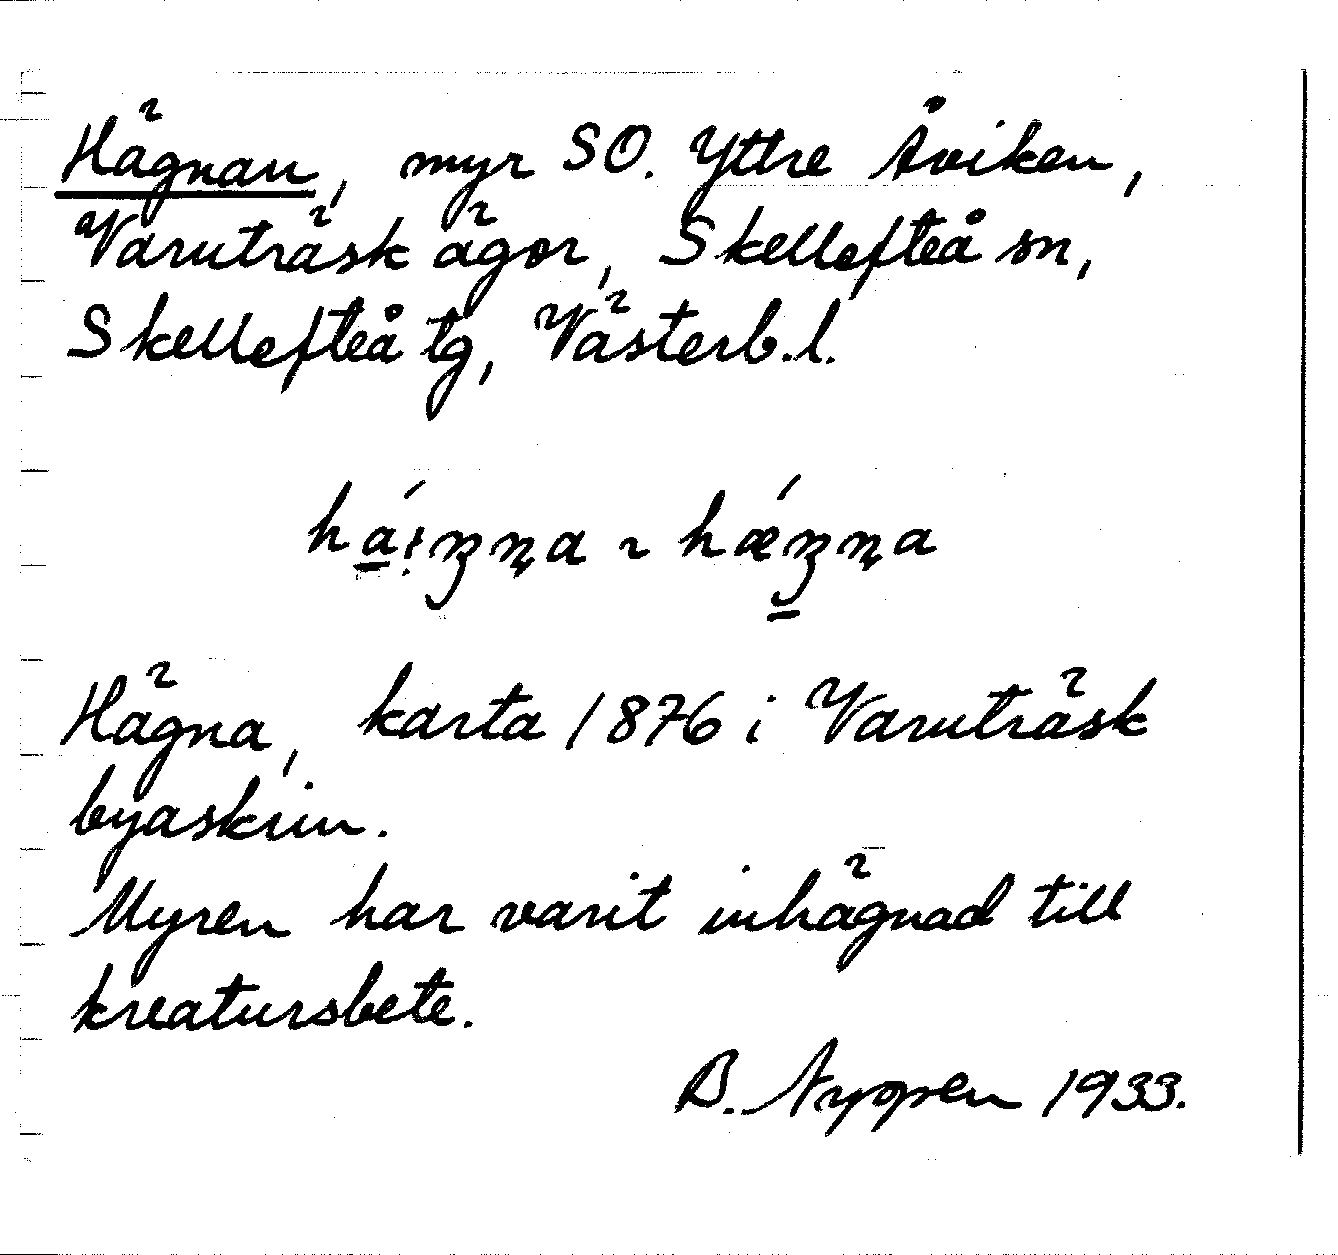 Hägnan, myr SO. Yttre Åviken,
Varuträsk ägor, Skellefteå sn,
Skellefteå tg, Västerb.l.
Hägna, karta 1876 i Varuträsk
byaskrin.
Myren har varit inhägnad till
kreatursbete.
B. 1933.